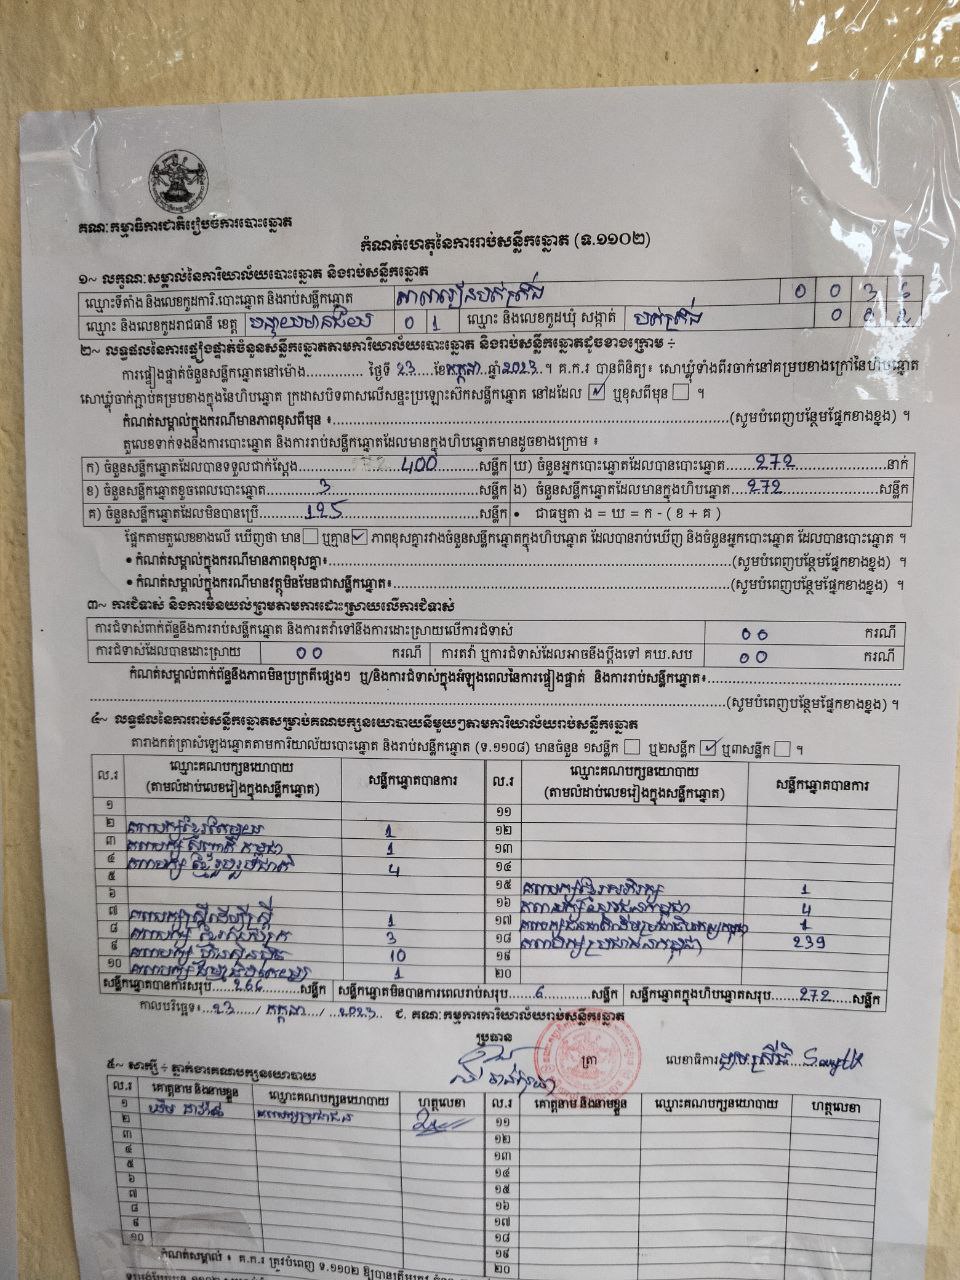 គណៈកម្មាធិការជាតិរៀបចំការបោះឆ្នោត
កំណត់ហេតុនៃការរាប់សន្លឹកឆ្នោត (ទ.១១០២)
១~ លក្ខណៈសម្គាល់នៃការិយាល័យបោះឆ្នោត និងរាប់សន្លឹកឆ្នោត
ឈ្មោះទីតាំង និងលេខកូដការិ.បោះឆ្នោត និងរាប់សន្លឹកឆ្នោត សាលារៀន 0 0 3 6
ឈ្មោះ និងលេខកូដរាជធានី ខេត្ត បន្ទាយមានជ័យ 0 1 ឈ្មោះ និងលេខកូដឃុំ សង្កាត់ 0
២~ លទ្ធផលនៃការផ្ទៀងផ្ទាត់ចំនួនសន្លឹកឆ្នោតតាមការិយាល័យបោះឆ្នោត និងរាប់សន្លឹកឆ្នោតដូចខាងក្រោម ÷
ការផ្ទៀងផ្ទាត់ចំនួនសន្លឹកឆ្នោតនៅម៉ោង.............. ថ្ងៃទី 23 ខែ កក្កដា ឆ្នាំ 2023 ។ គ.ក.រ បានពិនិត្យ៖ សោឃ្លុំទាំងពីរចាក់នៅគម្របខាងក្រៅនៃហិបឆ្នោត
សោឃ្លុំចាក់ភ្ជាប់គម្របខាងក្នុងនៃហិបឆ្នោត ក្រដាសបិទពាសលើសន្ទះប្រឡោះស៊កសន្លឹកឆ្នោត នៅដដែល ☑ ឬខុសពីមុន ☐ ។
កំណត់សម្គាល់ក្នុងករណីមានភាពខុសពីមុន ៖..............(សូមបំពេញបន្ថែមផ្នែកខាងខ្នង) ។
តួលេខទាក់ទងនឹងការបោះឆ្នោត និងការរាប់សន្លឹកឆ្នោតដែលមានក្នុងហិបឆ្នោតមានដូចខាងក្រោម ៖
ក) ចំនួនសន្លឹកឆ្នោតដែលបានទទួលជាក់ស្តែង 400 សន្លឹក ឃ) ចំនួនអ្នកបោះឆ្នោតដែលបានបោះឆ្នោត 272 នាក់
ខ) ចំនួនសន្លឹកឆ្នោតខូចពេលបោះឆ្នោត 3 សន្លឹក ង) ចំនួនសន្លឹកឆ្នោតដែលមានក្នុងហិបឆ្នោត 272 សន្លឹក
គ) ចំនួនសន្លឹកឆ្នោតដែលមិនបានប្រើ 125 សន្លឹក • ជាធម្មតា ង = ឃ = ក - ( ខ + គ )
ផ្អែកតាមតួលេខខាងលើ ឃើញថា មាន ☐ ឬគ្មាន ☑ ភាពខុសគ្នារវាងចំនួនសន្លឹកឆ្នោតក្នុងហិបឆ្នោត ដែលបានរាប់ឃើញ និងចំនួនអ្នកបោះឆ្នោត ដែលបានបោះឆ្នោត ។
• កំណត់សម្គាល់ក្នុងករណីមានភាពខុសគ្នា៖..............(សូមបំពេញបន្ថែមផ្នែកខាងខ្នង) ។
• កំណត់សម្គាល់ក្នុងករណីមានវត្ថុមិនមែនជាសន្លឹកឆ្នោត៖..............(សូមបំពេញបន្ថែមផ្នែកខាងខ្នង) ។
៣~ ការជំទាស់ និងការមិនយល់ព្រមតាមការដោះស្រាយលើការជំទាស់
ការជំទាស់ពាក់ព័ន្ធនឹងការរាប់សន្លឹកឆ្នោត និងការតវ៉ាទៅនឹងការដោះស្រាយលើការជំទាស់ 00 ករណី
ការជំទាស់ដែលបានដោះស្រាយ 00 ករណី ការតវ៉ា ឬការជំទាស់ដែលអាចនឹងប្តឹងទៅ គឃ.សប 00 ករណី
កំណត់សម្គាល់ពាក់ព័ន្ធនឹងភាពមិនប្រក្រតីផ្សេងៗ ឬ/និងការជំទាស់ក្នុងអំឡុងពេលនៃការផ្ទៀងផ្ទាត់ និងការរាប់សន្លឹកឆ្នោត៖..............
..............(សូមបំពេញបន្ថែមផ្នែកខាងខ្នង) ។
៤~ លទ្ធផលនៃការរាប់សន្លឹកឆ្នោតសម្រាប់គណបក្សនយោបាយនីមួយៗតាមការិយាល័យរាប់សន្លឹកឆ្នោត
តារាងកត់ត្រាសំឡេងឆ្នោតតាមការិយាល័យបោះឆ្នោត និងរាប់សន្លឹកឆ្នោត (ទ.១១០៨) មានចំនួន ១សន្លឹក ☐ ឬ២សន្លឹក ☑ ឬ៣សន្លឹក ☐ ។
ល.រ ឈ្មោះគណបក្សនយោបាយ (តាមលំដាប់លេខរៀងក្នុងសន្លឹកឆ្នោត) សន្លឹកឆ្នោតបានការ ល.រ ឈ្មោះគណបក្សនយោបាយ (តាមលំដាប់លេខរៀងក្នុងសន្លឹកឆ្នោត) សន្លឹកឆ្នោតបានការ
១ ១១
២ គណបក្ស 1 ១២
៣ គណបក្ស កម្ពុជា 1 ១៣
៤ គណបក្ស ខ្មែររួបរួមជាតិ 4 ១៤
៥ ១៥ គណបក្ស 1
៦ ១៦ គណបក្ស 4
៧ គណបក្សស្ត្រីដើម្បីស្ត្រី 1 ១៧ គណបក្ស 1
៨ គណបក្ស 3 ១៨ គណបក្សប្រជាជនកម្ពុជា 239
៩ គណបក្ស ហ្វ៊ុនស៊ិនប៉ិច 10 ១៩
១០ គណបក្ស 1 ២០
សន្លឹកឆ្នោតបានការសរុប 266 សន្លឹក សន្លឹកឆ្នោតមិនបានការពេលរាប់សរុប 6 សន្លឹក សន្លឹកឆ្នោតក្នុងហិបឆ្នោតសរុប 272 សន្លឹក
កាលបរិច្ឆេទ៖ 23 / កក្កដា / 2023 ៩. គណៈកម្មការការិយាល័យរាប់សន្លឹកឆ្នោត
ប្រធាន
ត្រា លេខាធិការ
៥~ សាក្សី ÷ ភ្នាក់ងារគណបក្សនយោបាយ
ល.រ គោត្តនាម និងនាមខ្លួន ឈ្មោះគណបក្សនយោបាយ ហត្ថលេខា ល.រ គោត្តនាម និងនាមខ្លួន ឈ្មោះគណបក្សនយោបាយ ហត្ថលេខា
១ គណបក្សប្រជាជន ១១
២ ១២
៣ ១៣
៤ ១៤
៥ ១៥
៦ ១៦
៧ ១៧
៨ ១៨
៩ ១៩
១០ ២០
កំណត់សម្គាល់ ៖ គ.ក.រ ត្រូវបំពេញ ទ.១១០២ ឱ្យបានត្រឹមត្រូវ